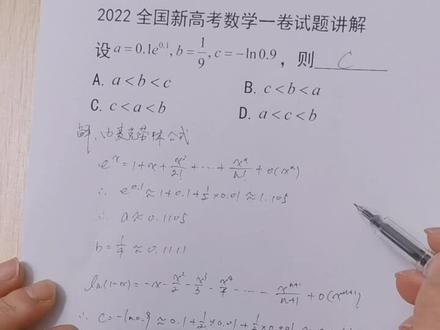 2022 全国新高考数学一卷试题讲解
设 a = 0.1e^{0.1}, b = \frac{1}{9}, c = -ln0.9，则 C
A. a < b < c B. c < b < a
C. c < a < b D. a < c < b
解：由麦克劳林公式
e^x = 1 + x + \frac{x^2}{2!} + ... + \frac{x^n}{n!} + o(x^n)
∴ e^{0.1} ≈ 1 + 0.1 + \frac{1}{2} × 0.01 ≈ 1.105
∴ a ≈ 0.1105
b = \frac{1}{9} ≈ 0.1111
ln(1-x) = -x - \frac{x^2}{2} - \frac{x^3}{3} - \frac{x^4}{4} - ... - \frac{x^{n+1}}{n+1} + o(x^{n+1})
∴ c = -ln0.9 ≈ 0.1 + \frac{1}{2} × 0.01 +